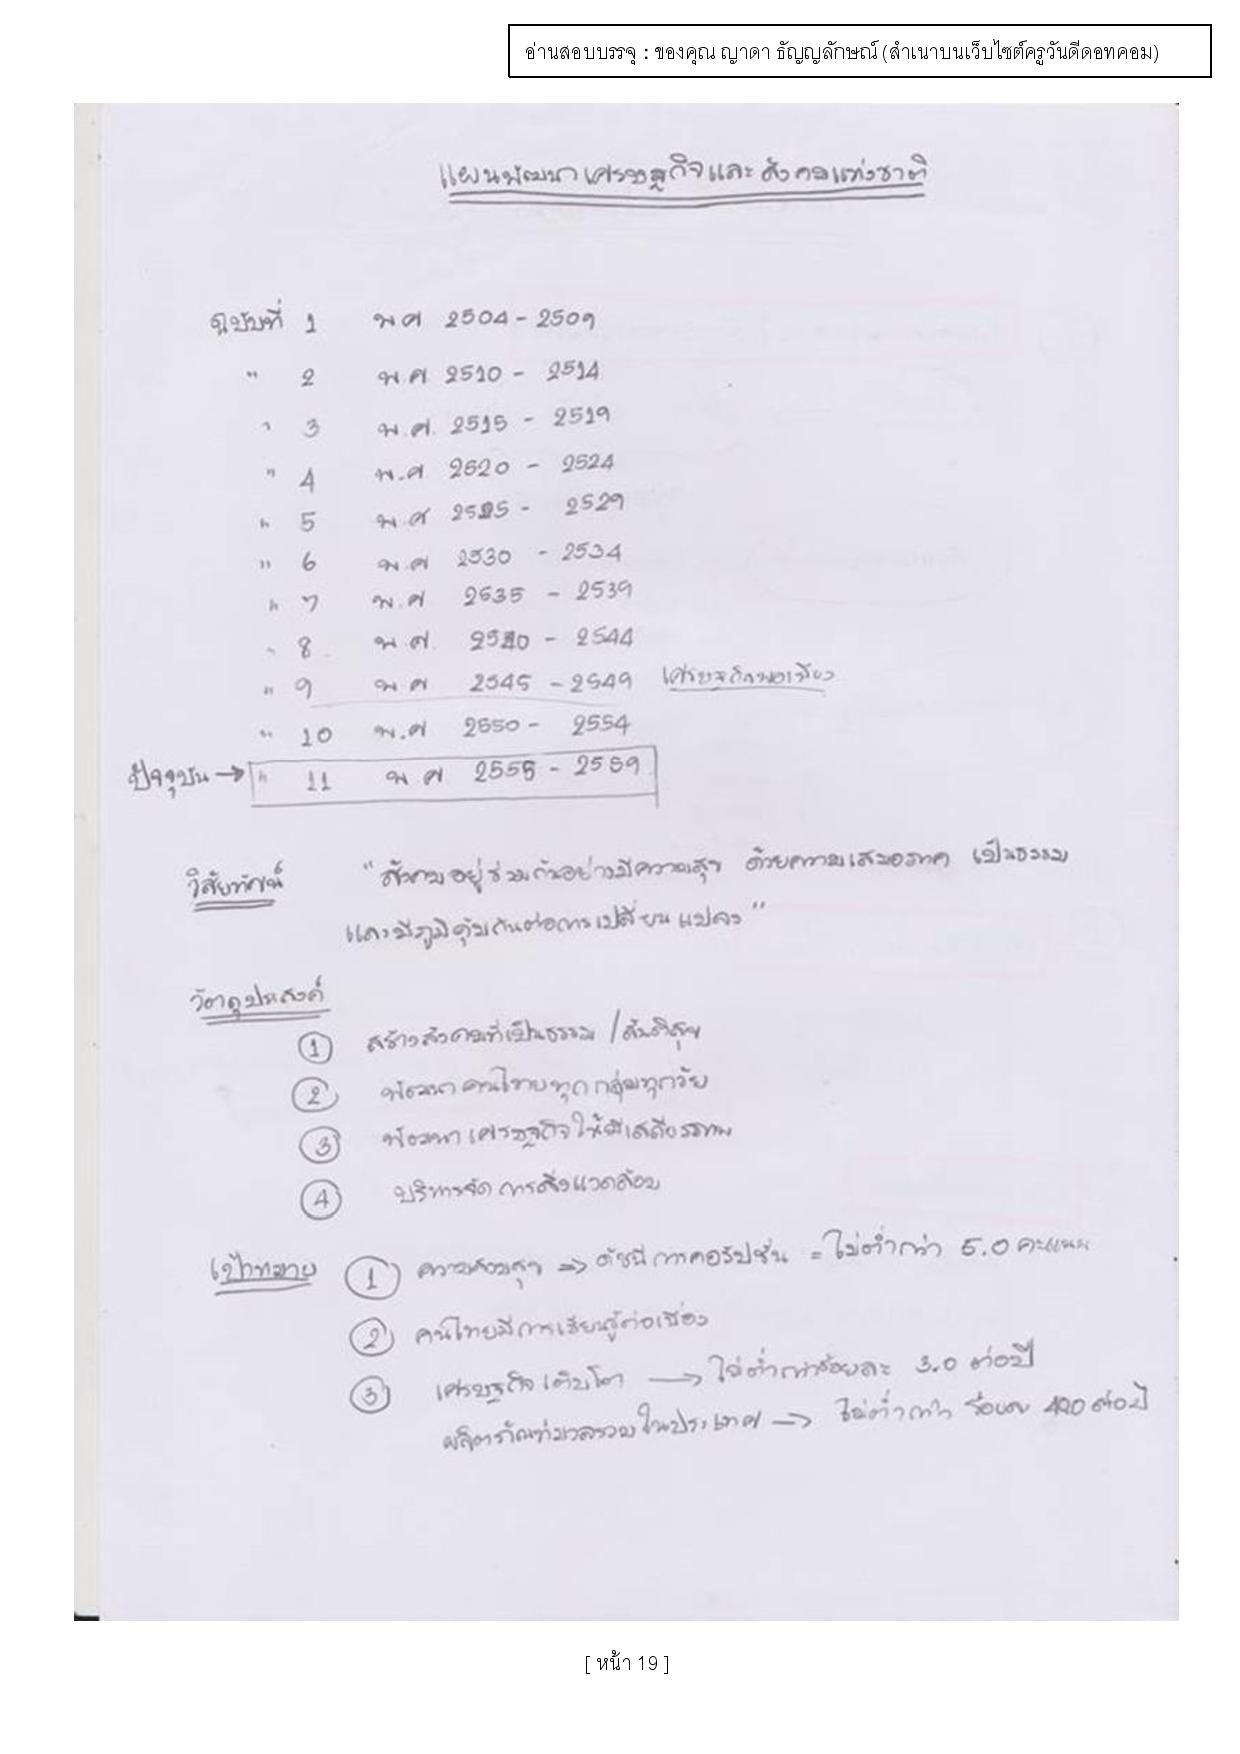 อ่านสอบบรรจุ : ของคุณ ญาดา ธัญญลักษณ์ (สำเนาบนเว็บไซต์ครูวันดีดอทคอม)
แผนพัฒนาเศรษฐกิจและสังคมแห่งชาติ
ฉบับที่ 1 พศ 2504 - 2509
" 2 พ.ศ. 2510 - 2514
" 3 พ.ศ. 2515 - 2519
" 4 พ.ศ 2520 - 2524
" 5 พ.ศ 2525 - 2529
" 6 พ.ศ 2530 - 2534
" 7 พ.ศ 2535 - 2539
" 8 พ.ศ. 2540 - 2544
" 9 พ ศ 2545 - 2549 เศรษฐกิจพอเพียง
" 10 พ.ศ 2550 - 2554
ปัจจุบัน → " 11 พ ศ 2555 - 2559
วิสัยทัศน์ "สังคมอยู่ร่วมกันอย่างมีความสุข ด้วยความเสมอภาค เป็นธรรม
และมีภูมิคุ้มกันต่อการเปลี่ยนแปลง"
วัตถุประสงค์
1 สร้างสังคมที่เป็นธรรม / สันติสุข
2 พัฒนาคนไทยทุกกลุ่มทุกวัย
3 พัฒนาเศรษฐกิจให้มีเสถียรภาพ
4 บริหารจัดการสิ่งแวดล้อม
เป้าหมาย 1 ความสงบสุข ⇒ ดัชนีการคอรัปชั่น = ไม่ต่ำกว่า 5.0 คะแนน
2 คนไทยมีการเรียนรู้ต่อเนื่อง
3 เศรษฐกิจเติบโต → ไม่ต่ำกว่าร้อยละ 3.0 ต่อปี
ผลิตภัณฑ์มวลรวมในประเทศ → ไม่ต่ำกว่า ร้อยละ 40 ต่อปี
[ หน้า 19 ]